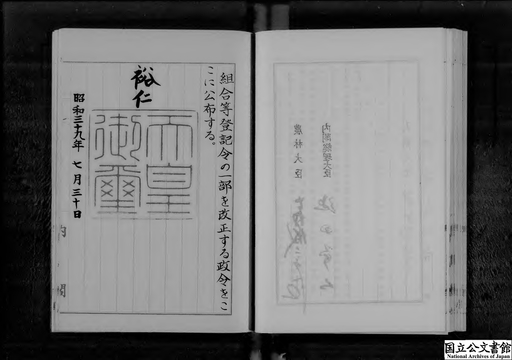 組合等登記令の一部を改正する政令をこ
こに公布する。
裕仁
天皇
御璽
昭和三十九年 七月三十日
内閣
内閣総理大臣
農林大臣
国立公文書館
National Archives of Japan